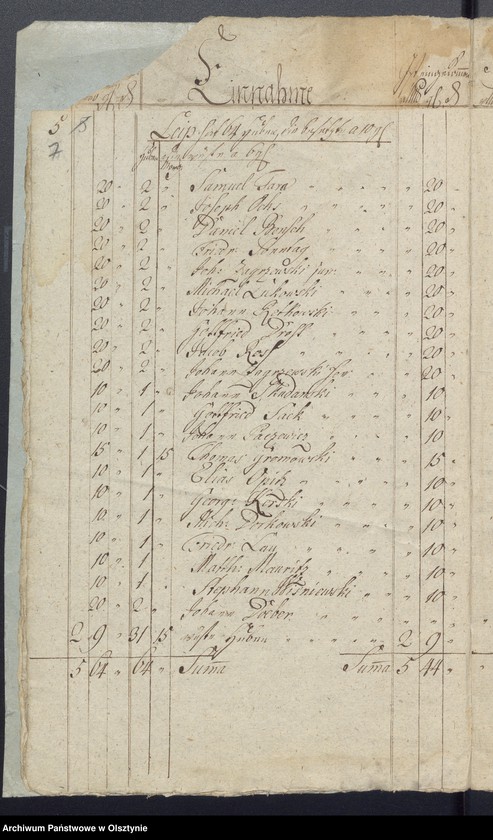 Einnahme
5 8
7
Leip hat 64 Huben, die besetzte a 10
Huben Morg wüste a 6
20 " 2 " Samuel Tara " " " " 20 "
20 " 2 " Joseph Ochs " " " " 20 "
20 " 2 " Daniel " " " 20 "
20 " 2 " Friedr Sonntag " " " 20 "
20 " 2 " Joh: Zagrzewski jun: " " 20 "
20 " 2 " Michael Lukowski " " " 20 "
20 " 2 " Johann " " 20 "
20 " 2 " Gottfried " " " 20 "
20 " 2 " Jacob " " " " 20 "
20 " 2 " Johann Zagrzewski " 20 "
10 " 1 " Johann " " 10 "
10 " 1 " Gottfried Sack " " " 10 "
10 " 1 " Johann " " " 10 "
15 " 1 15 Thomas Gromowski " " 15 "
10 " 1 " Elias Opitz " " " " 10 "
10 " 1 " Georg Kerski " " " 10 "
10 " 1 " Mich: " " " 10 "
10 " 1 " Friedr Lau " " " " 10 "
10 " 1 " Matth: Mauritz " " " 10 "
10 " 1 " Stephann Wisniewski " " 10 "
20 " 2 " Johann " " " "
2 9 " 31 15 wüste Huben " " " " " 2 9 "
5 64 " 64 " Summa Summa 5 44 "
Archiwum Państwowe w Olsztynie